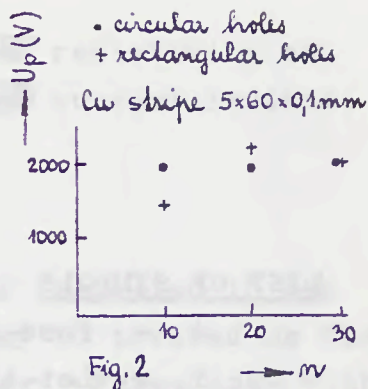 • circular holes
+ rectangular holes
Cu stripe 5x60x0,1mm
Up(V)
2000
1000
10 20 30
Fig. 2
n